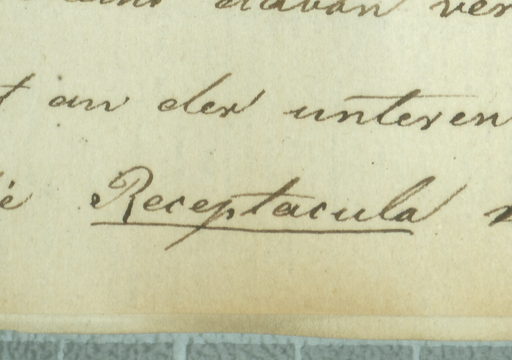 davon
an der unteren
Receptacula